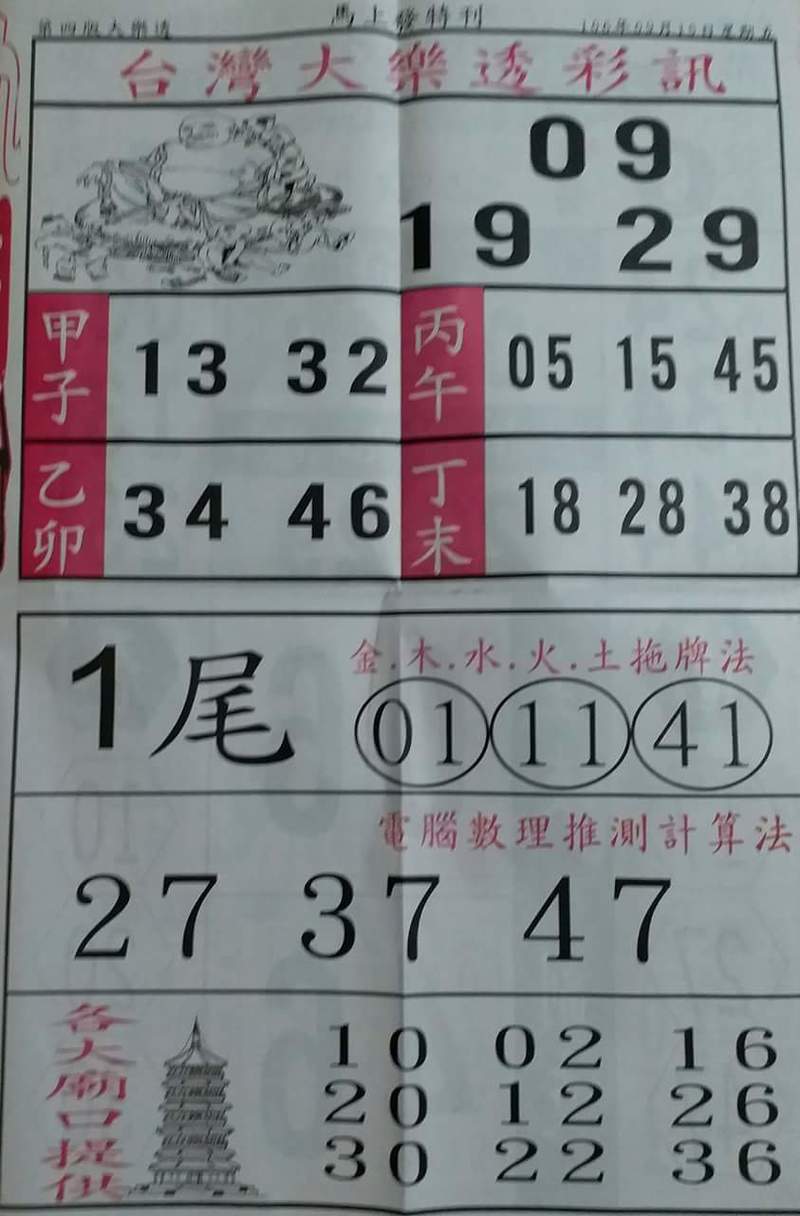 第四版大樂透 馬上發特刊
台灣大樂透彩訊
09
19 29
甲子 13 32 丙午 05 15 45
乙卯 34 46 丁末 18 28 38
1尾 金.木.水.火.土拖牌法
01 11 41
電腦數理推測計算法
27 37 47
各大廟口提供
10 02 16
20 12 26
30 22 36